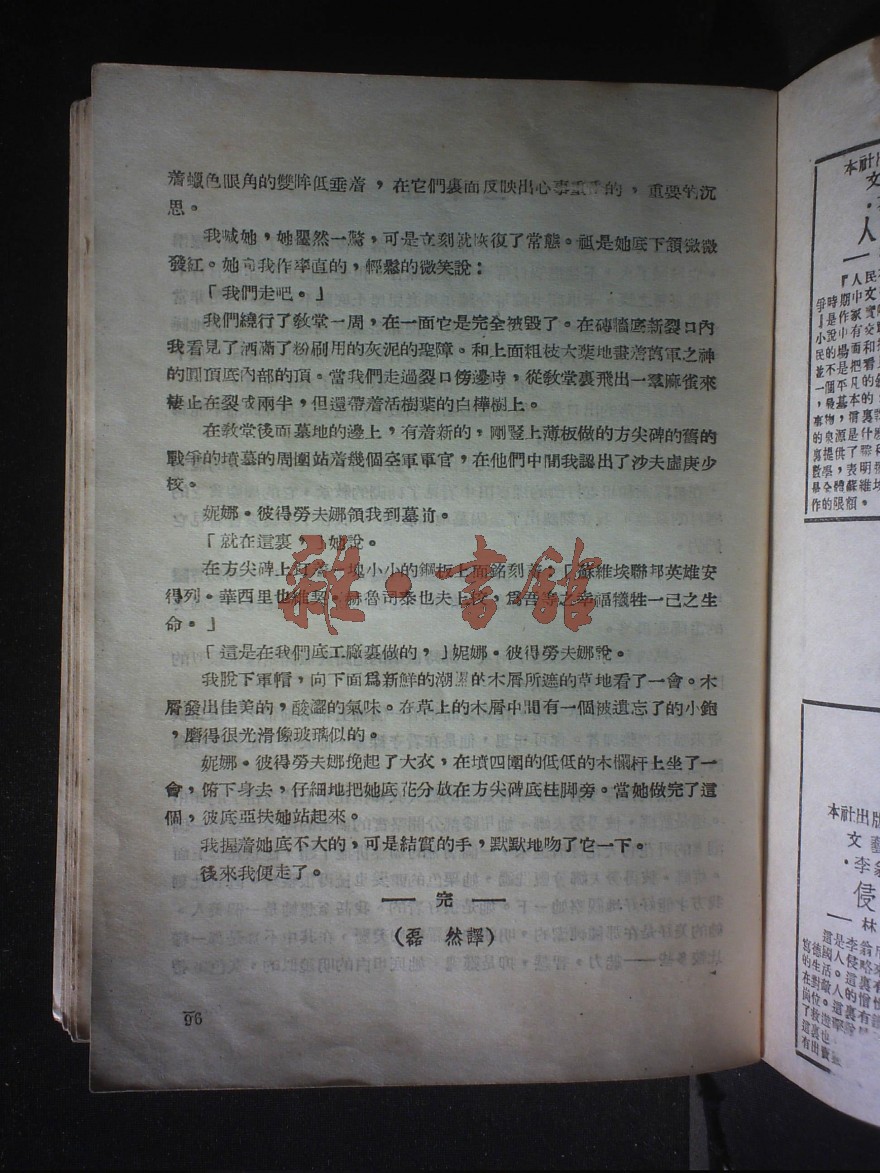 着蠟色眼角的雙眸低垂着，在它們裏面反映出心事重重的，重要的沉
思。
我喊她，她矍然一驚，可是立刻就恢復了常態。祗是她底下頷微微
發紅。她向我作率直的，輕鬆的微笑說：
「我們走吧。」
我們繞行了敎堂一周，在一面它是完全被毀了。在磚牆底新裂口內
我看見了洒滿了粉刷用的灰泥的聖障。和上面粗枝大葉地畫着萬軍之神
的圓頂底內部的頂。當我們走過裂口傍邊時，從敎堂裏飛出一羣麻雀來
棲止在裂成兩半，但還帶着活樹葉的白樺樹上。
在敎堂後面墓地的邊上，有着新的，剛豎上薄板做的方尖碑的舊的
戰爭的墳墓的周圍站着幾個空軍軍官，在他們中間我認出了沙夫虛庚少
校。
妮娜·彼得勞夫娜領我到墓前。
「就在這裏，」她說。
在方尖碑上釘着一塊小小的鋼板上面銘刻着：「蘇維埃聯邦英雄安
得列·華西里也維契·赫魯司泰也夫上校，爲吾等之幸福犧牲一己之生
命。」
「這是在我們底工廠裏做的，」妮娜·彼得勞夫娜說。
我脫下軍帽，向下面爲新鮮的潮濕的木屑所遮的草地看了一會。木
屑發出佳美的，酸澀的氣味。在草上的木屑中間有一個被遺忘了的小鉋
，磨得很光滑像玻璃似的。
妮娜·彼得勞夫娜挽起了大衣，在墳四圍的低低的木欄杆上坐了一
會，俯下身去，仔細地把她底花分放在方尖碑底柱脚旁。當她做完了這
個，彼底亞扶她站起來。
我握着她底不大的，可是結實的手，默默地吻了它一下。
後來我便走了。
—— 完 ——
（磊 然譯）
96
雜·書館
本社出
文
人
『人民
爭時期中文
』是作家實
小說中有交
民的場面和
並不是把看
一個平凡的
，最基本的
事物，這裏
的泉源是什麽
裏提供了
數學，表明
是全體蘇維埃
作的限額。
本社出版
文藝
·李
侵
—— 林